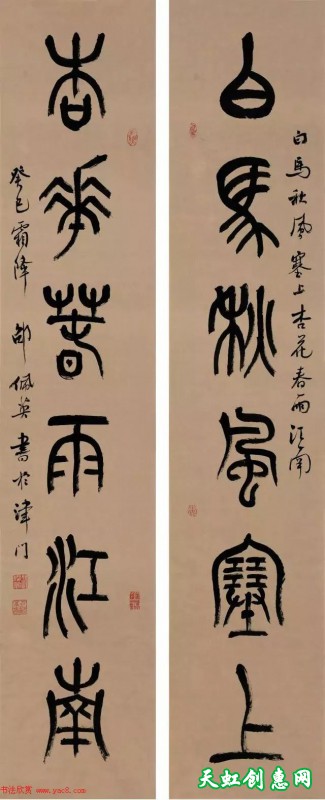 白馬秋風塞上
白馬秋風塞上杏花春雨江南
杏華春雨江南
癸巳霜降 邵佩英書於津门
书法欣赏
www.yac8.com
天虹创惠网